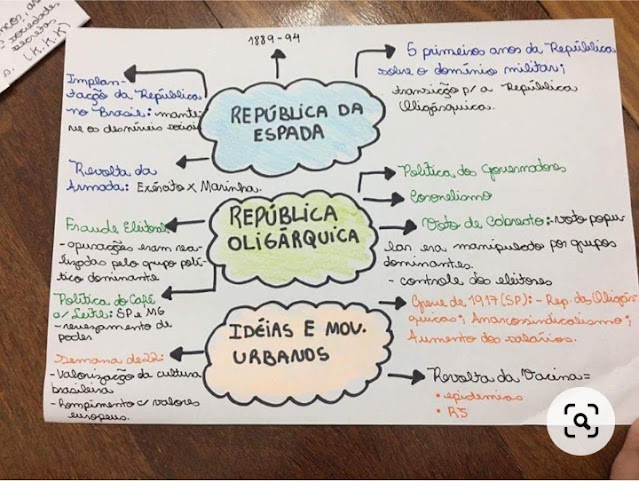 secretas
(K.K.K)
1889-94
REPÚBLICA DA
ESPADA
5 primeiros anos da República
sobre o domínio militar;
transição p/ a República
Oligárquica.
Implan-
tação da República
no Brasil: mante-
ve os desníveis sociais
Revolta da
Armada: Exército x Marinha.
REPÚBLICA
OLIGÁRQUICA
Política dos Governadores
Coronelismo
Voto de Cabresto:-voto popu-
lar era manipulado por grupos
dominantes.
- controle dos eleitores
Fraude Eleitoral
- apurações eram rea-
lizadas pelo grupo polí-
tico dominante
Política do Café
c/ Leite: SP e MG
- revezamento de
poder
IDÉIAS E MOV.
URBANOS
Greve de 1917 (SP): - Rep. das Oligár
quicas; Anarcosindicalismo;
Aumento dos salários.
Semana de 22:
- Valorização da cultura
brasileira
- Rompimento c/ valores
europeus.
Revolta da Vacina=
• epidemias
• RJ